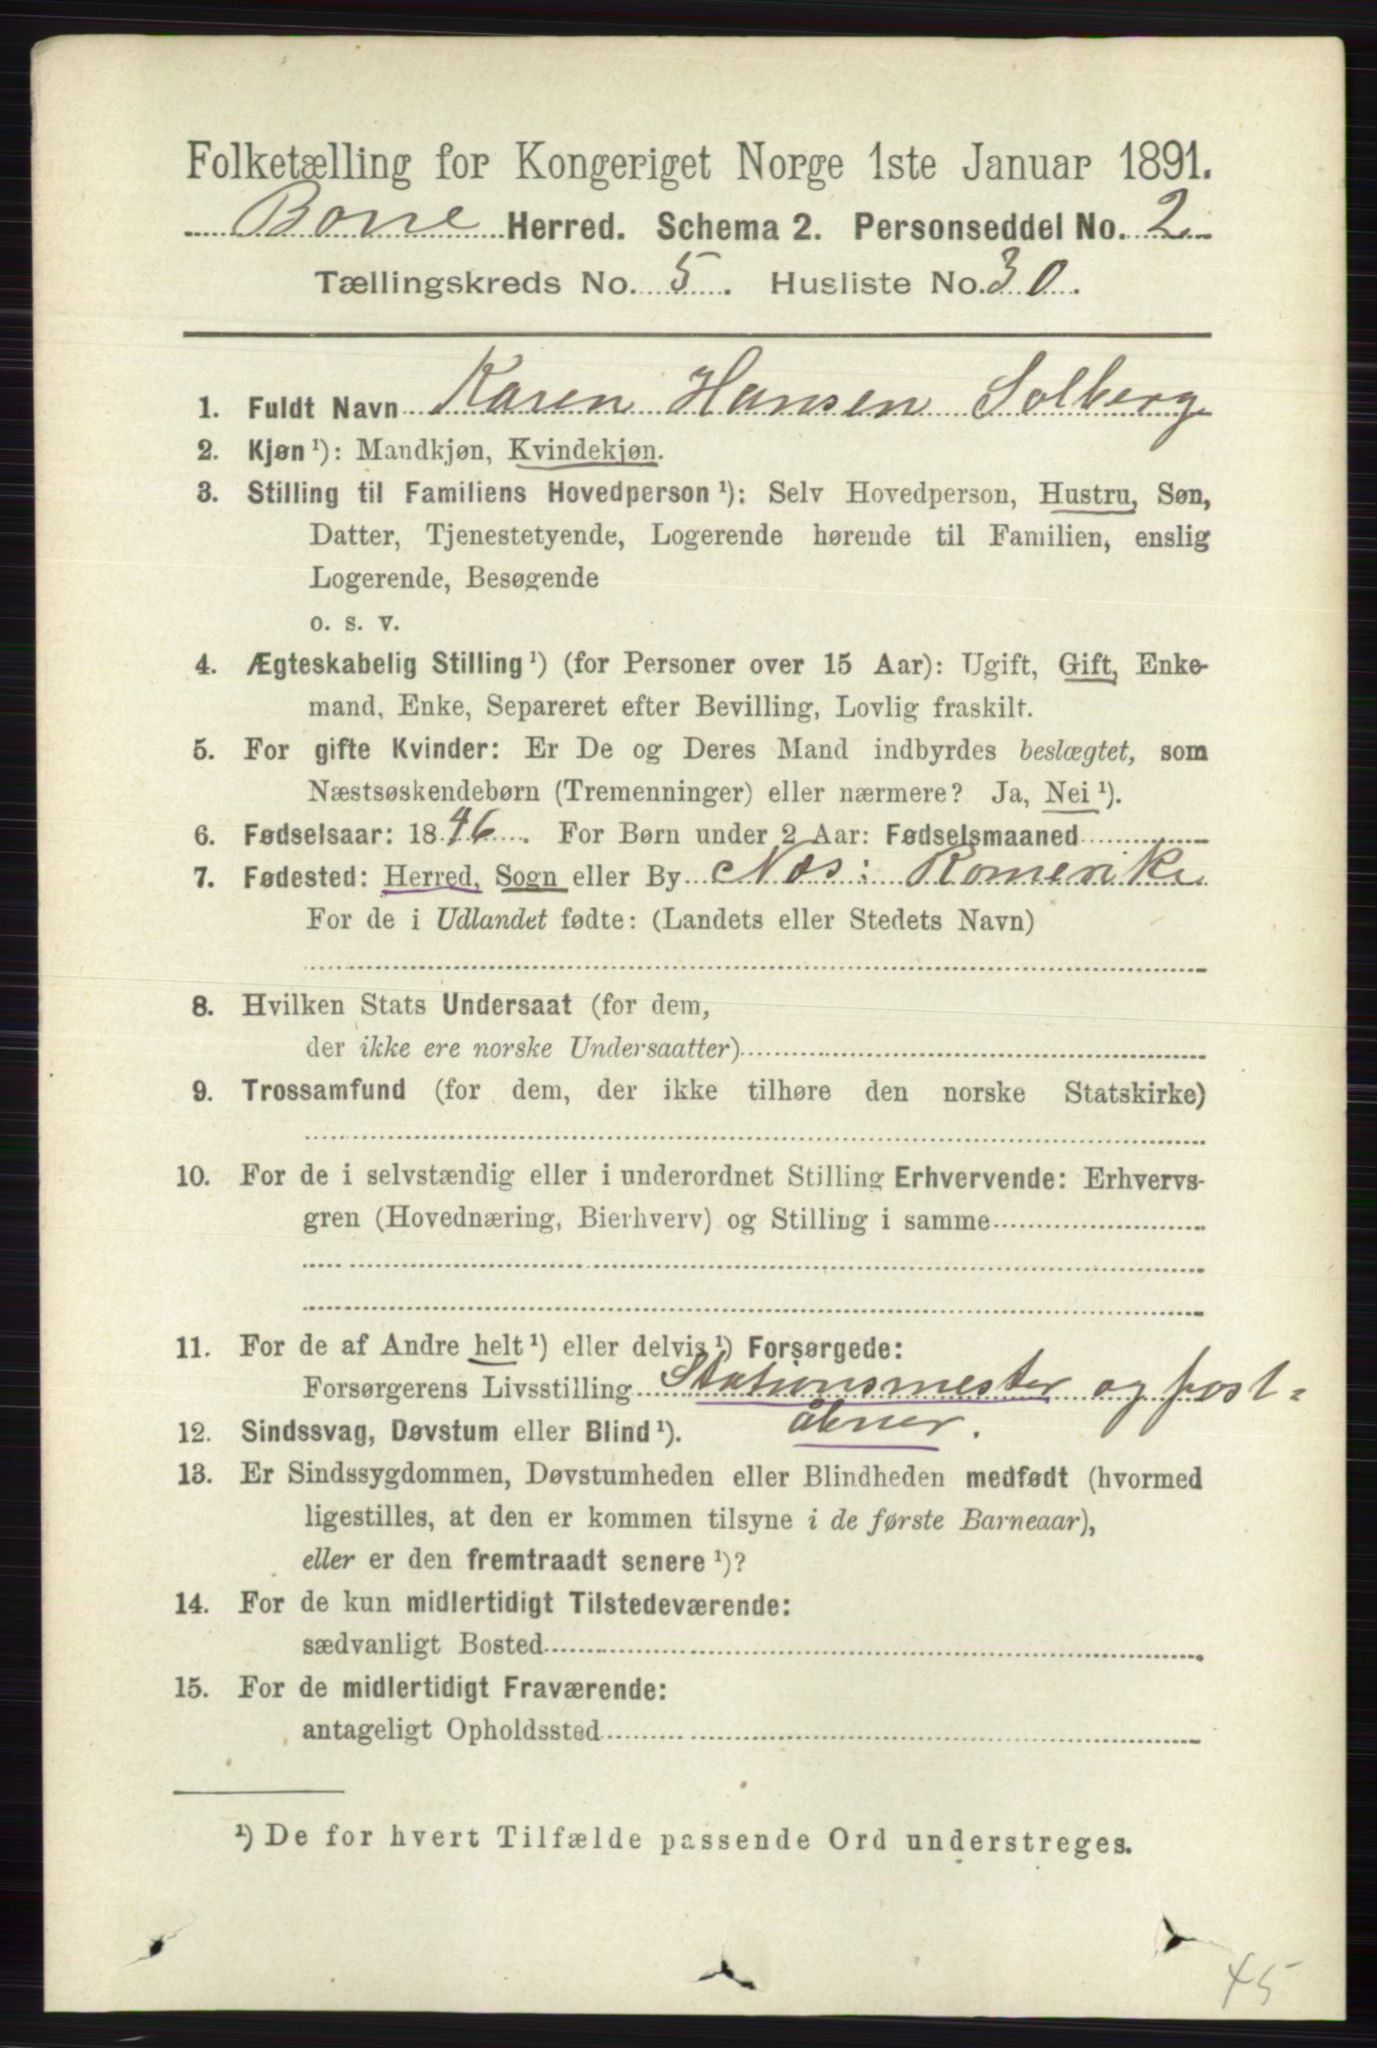 Folketælling for Kongeriget Norge 1ste Januar 1891.
Borre Herred. Schema 2. Personseddel No. 2
Tællingskreds No. 5. Husliste No. 30.
1. Fuldt Navn Karen Hansen Solberg
2. Kjøn ¹): Mandkjøn, Kvindekjøn.
3. Stilling til Familiens Hovedperson ¹): Selv Hovedperson, Hustru, Søn,
Datter, Tjenestetyende, Logerende hørende til Familien, enslig
Logerende, Besøgende
o. s. v.
4. Ægteskabelig Stilling ¹) (for Personer over 15 Aar): Ugift, Gift, Enke-
mand, Enke, Separeret efter Bevilling, Lovlig fraskilt.
5. For gifte Kvinder: Er De og Deres Mand indbyrdes beslægtet, som
Næstsøskendebørn (Tremenninger) eller nærmere? Ja, Nei ¹).
6. Fødselsaar: 1846. For Børn under 2 Aar: Fødselsmaaned
7. Fødested: Herred, Sogn eller By Næs: Romerike
For de i Udlandet fødte: (Landets eller Stedets Navn)
8. Hvilken Stats Undersaat (for dem,
der ikke ere norske Undersaatter)
9. Trossamfund (for dem, der ikke tilhøre den norske Statskirke)
10. For de i selvstændig eller i underordnet Stilling Erhvervende: Erhvervs-
gren (Hovednæring, Bierhverv) og Stilling i samme
11. For de af Andre helt ¹) eller delvis ¹) Forsørgede:
Forsørgerens Livsstilling Stationsmester og post-
åbner.
12. Sindssvag, Døvstum eller Blind ¹).
13. Er Sindssygdommen, Døvstumheden eller Blindheden medfødt (hvormed
ligestilles, at den er kommen tilsyne i de første Barneaar),
eller er den fremtraadt senere ¹)?
14. For de kun midlertidigt Tilstedeværende:
sædvanligt Bosted
15. For de midlertidigt Fraværende:
antageligt Opholdssted
¹) De for hvert Tilfælde passende Ord understreges.
45